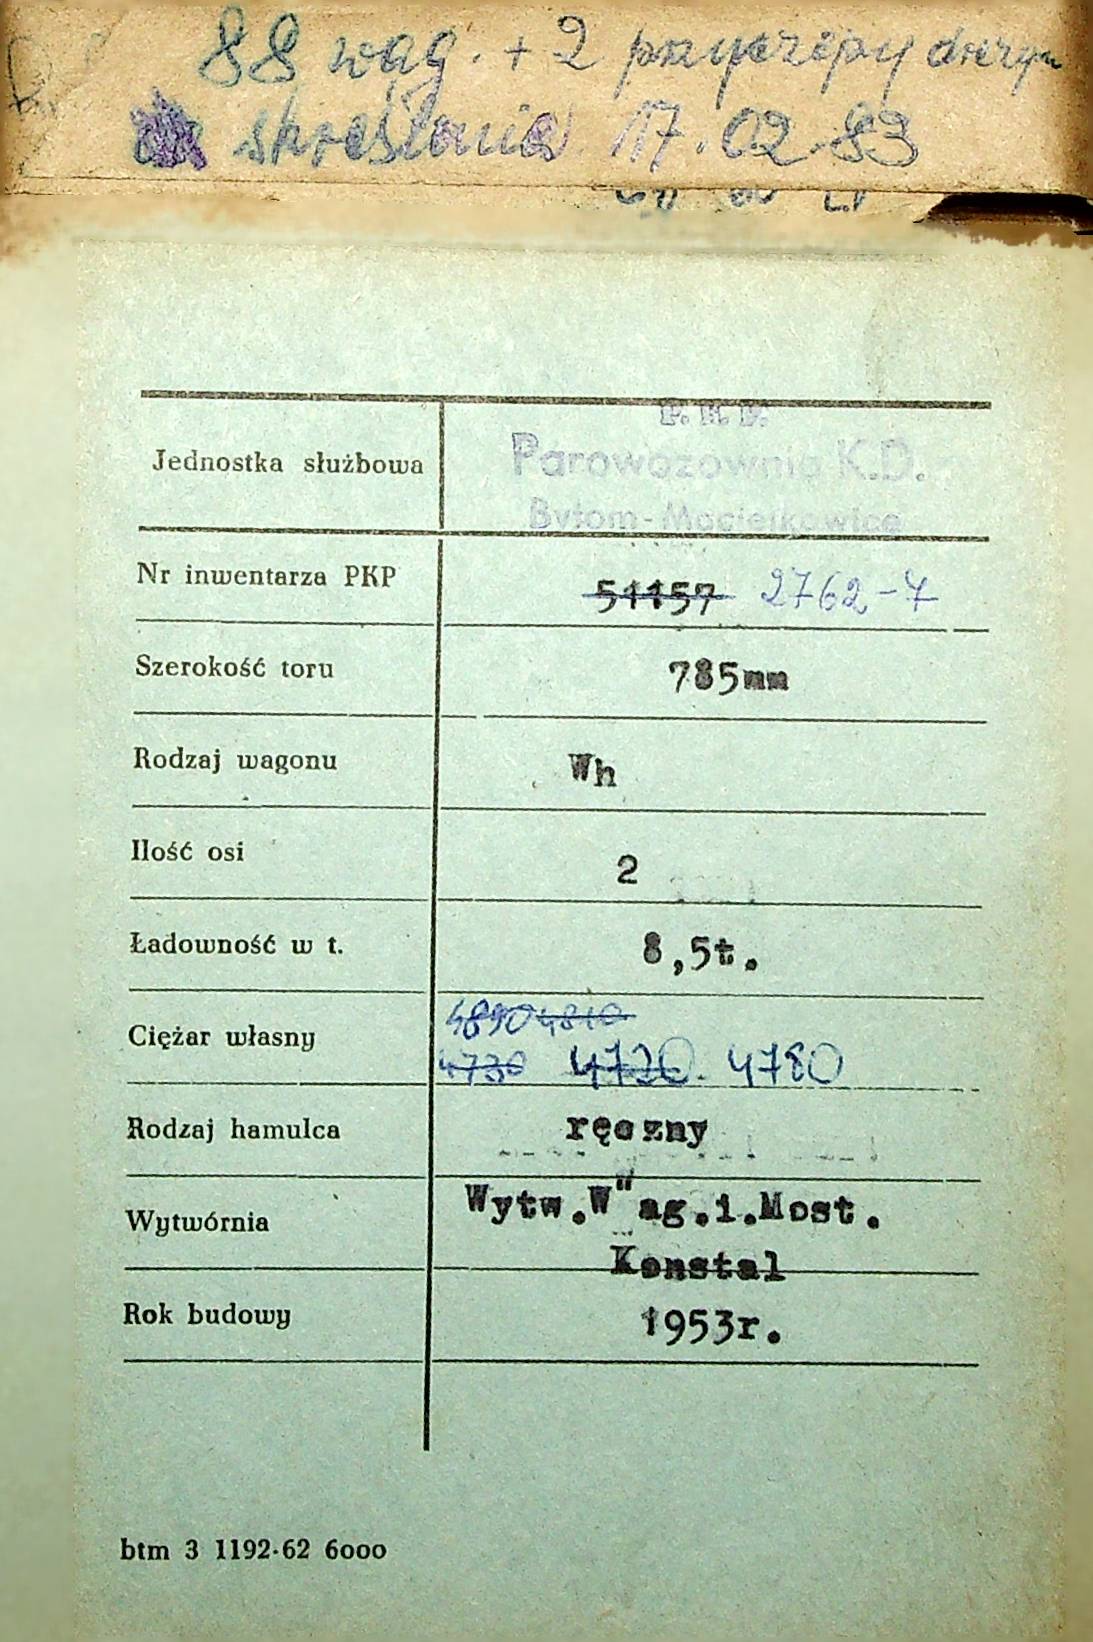 88 wag. + 2 przyczepy drezyn
skreślenia 17.02.83
P.K.P.
Jednostka służbowa Parowozownia K.D.
Bytom-Maciejkowice
Nr inwentarza PKP 51157 2762-7
Szerokość toru 785mm
Rodzaj wagonu Wh
Ilość osi 2
Ładowność w t. 8,5t.
4890 4810
Ciężar własny 4730 4720 4780
Rodzaj hamulca ręczny
Wytwórnia Wytw.W"ag.i.Most.
Konstal
Rok budowy 1953r.
btm 3 1192-62 6000